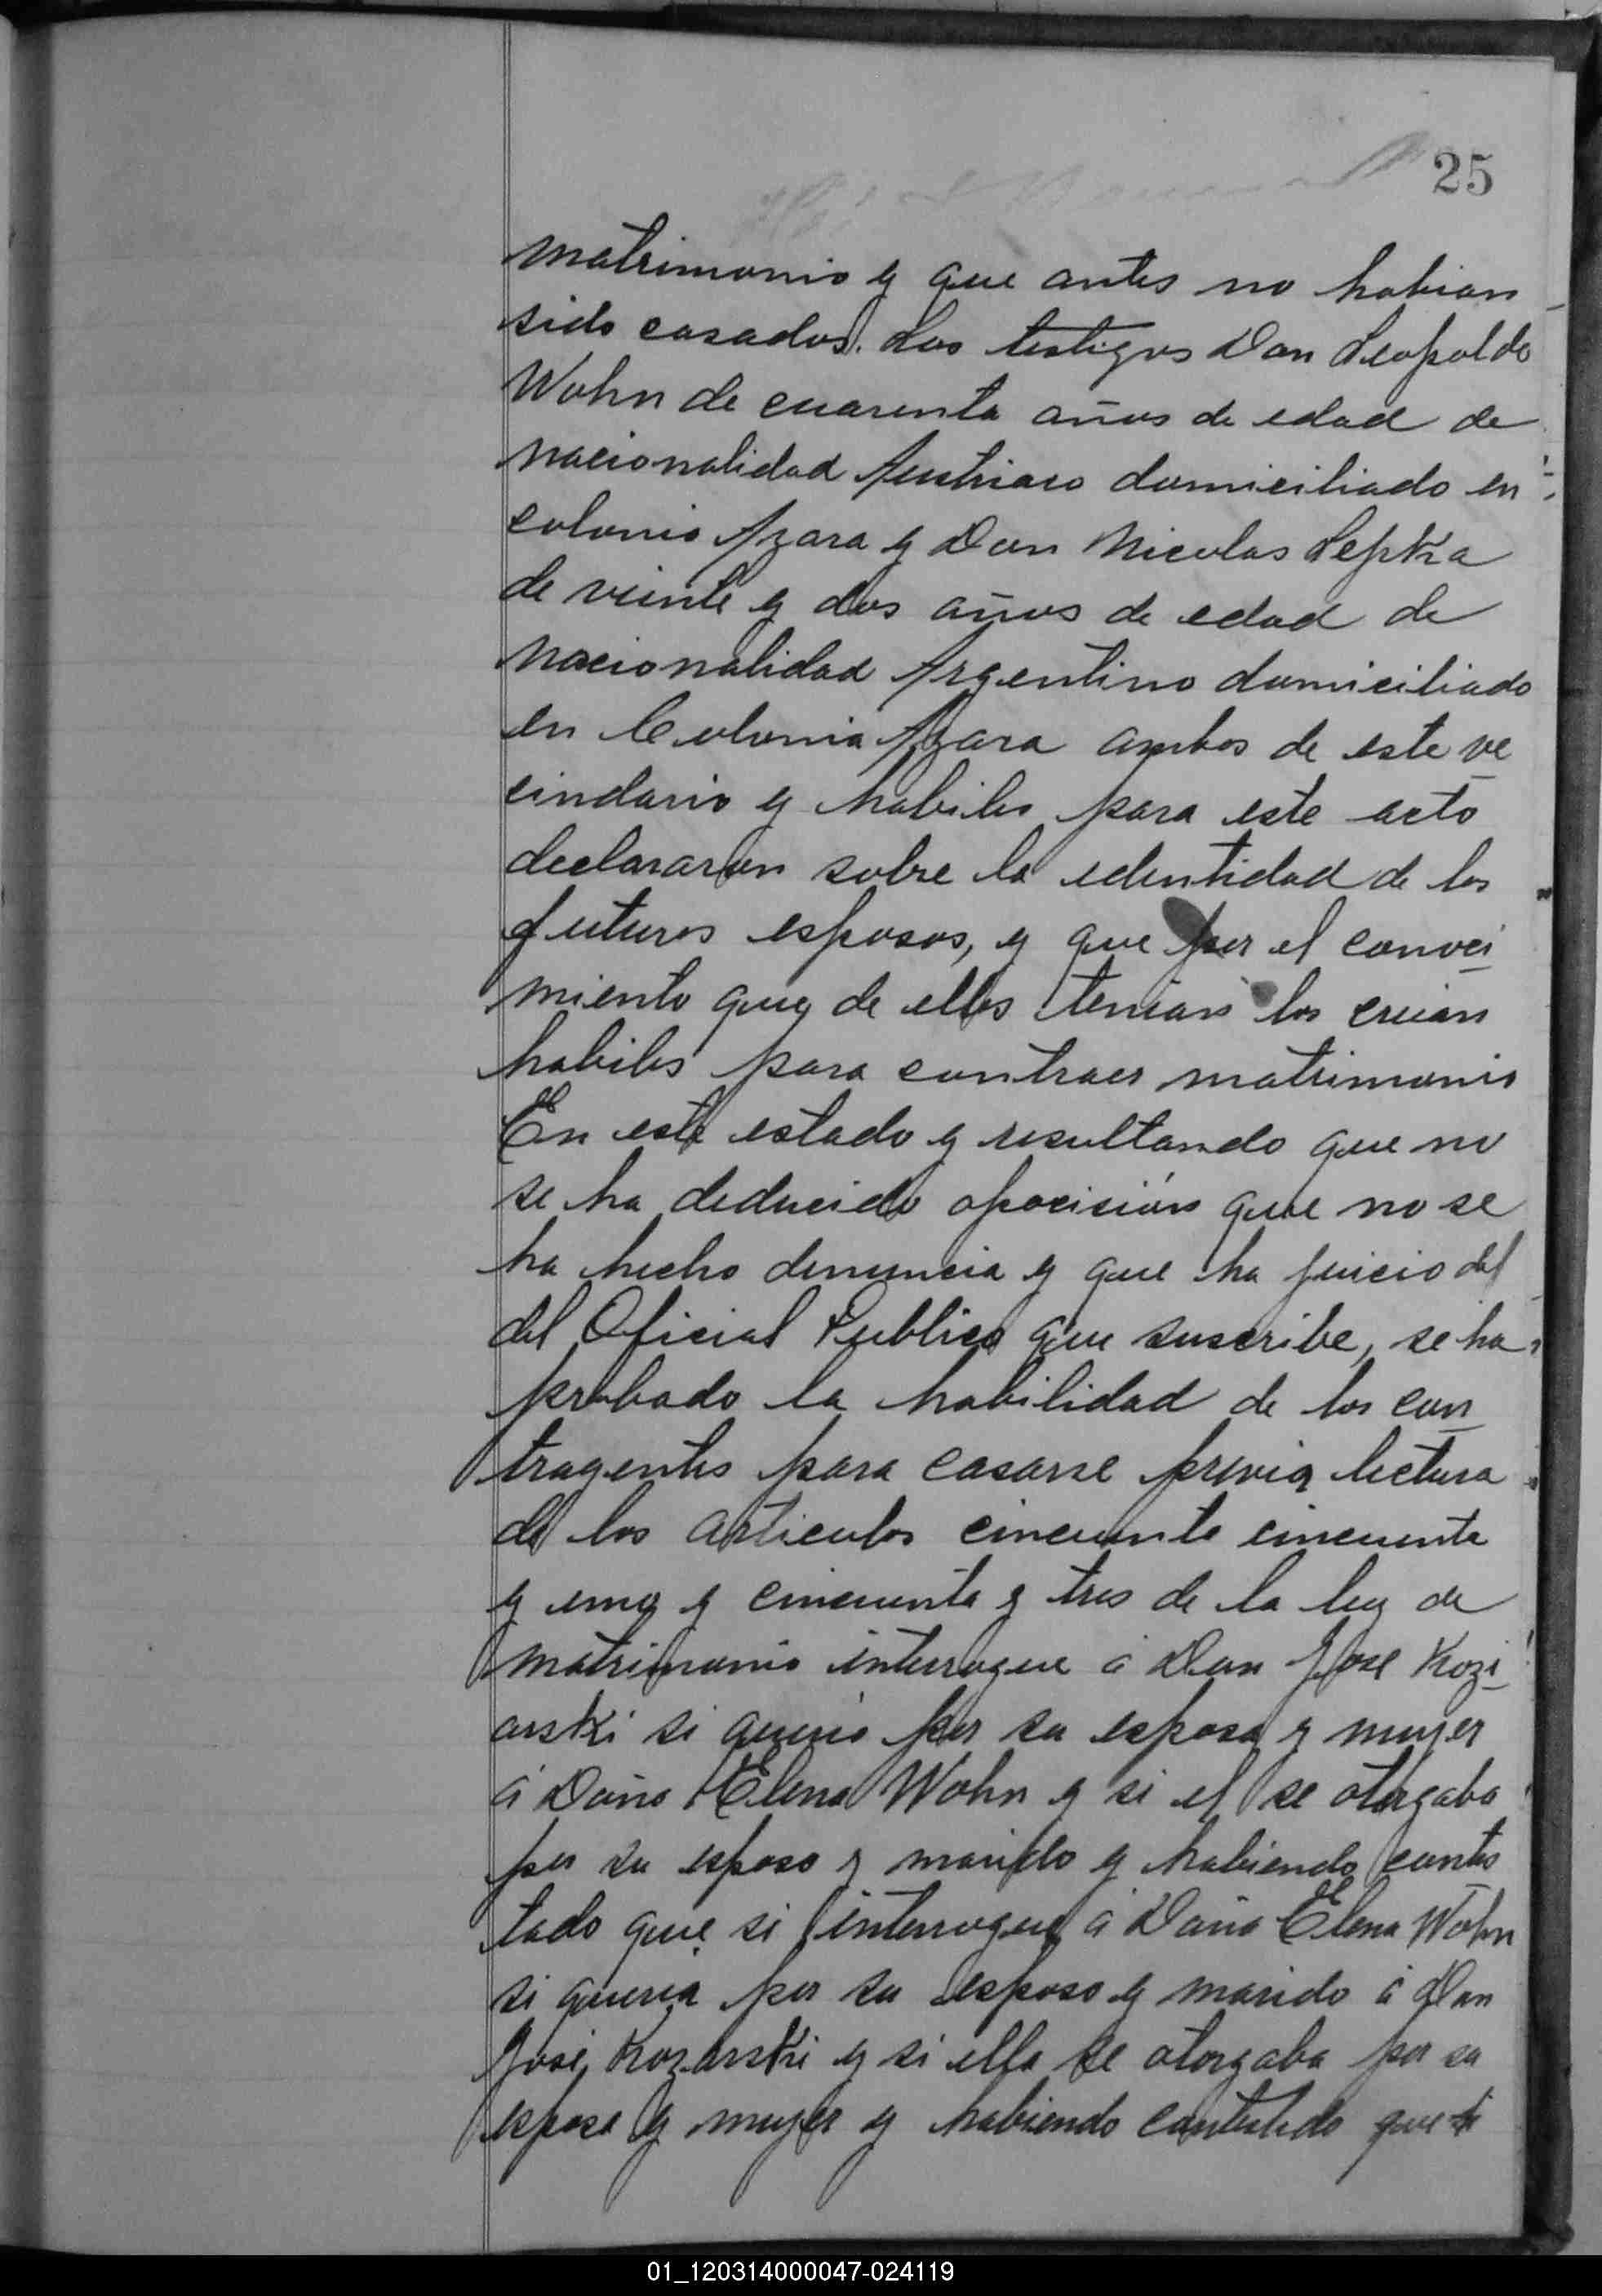 25
matrimonio y que antes no habian
sido casados. Los testigos Don Leopoldo
Wohn de cuarenta años de edad de
nacionalidad Austriaco domiciliado en
colonia Azara y Don Nicolas Lepka
de veinte y dos años de edad de
nacionalidad Argentino domiciliado
en Colonia Azara ambos de este ve
cindario y habiles para este acto
declararon sobre la edentidad de los
futuros esposos, y que por el conoci
miento que de ellos tenian los creian
habiles para contraer matrimonio
En este estado y resultando que no
se ha deducido oposición que no se
ha hecho denuncia y que ha juicio del
del Oficial Publico que suscribe, se ha
probado la habilidad de los con
tragentes para casarse previa lectura
de los articulos cincuenta cincuenta
y uno y cincuenta y tres de la ley de
matrimonio interrogue á Don Jose Kozi
arski si queria por su esposa y mujer
á Doña Elena Wohn y si el se otorgaba
por su esposo y marido y habiendo contes
tado que si interrogue á Doña Elena Wohn
si queria por su esposo y marido á Don
José Koziarski y si ella se otorgaba por su
esposa y mujer y habiendo contestado que si
01_120314000047-024119